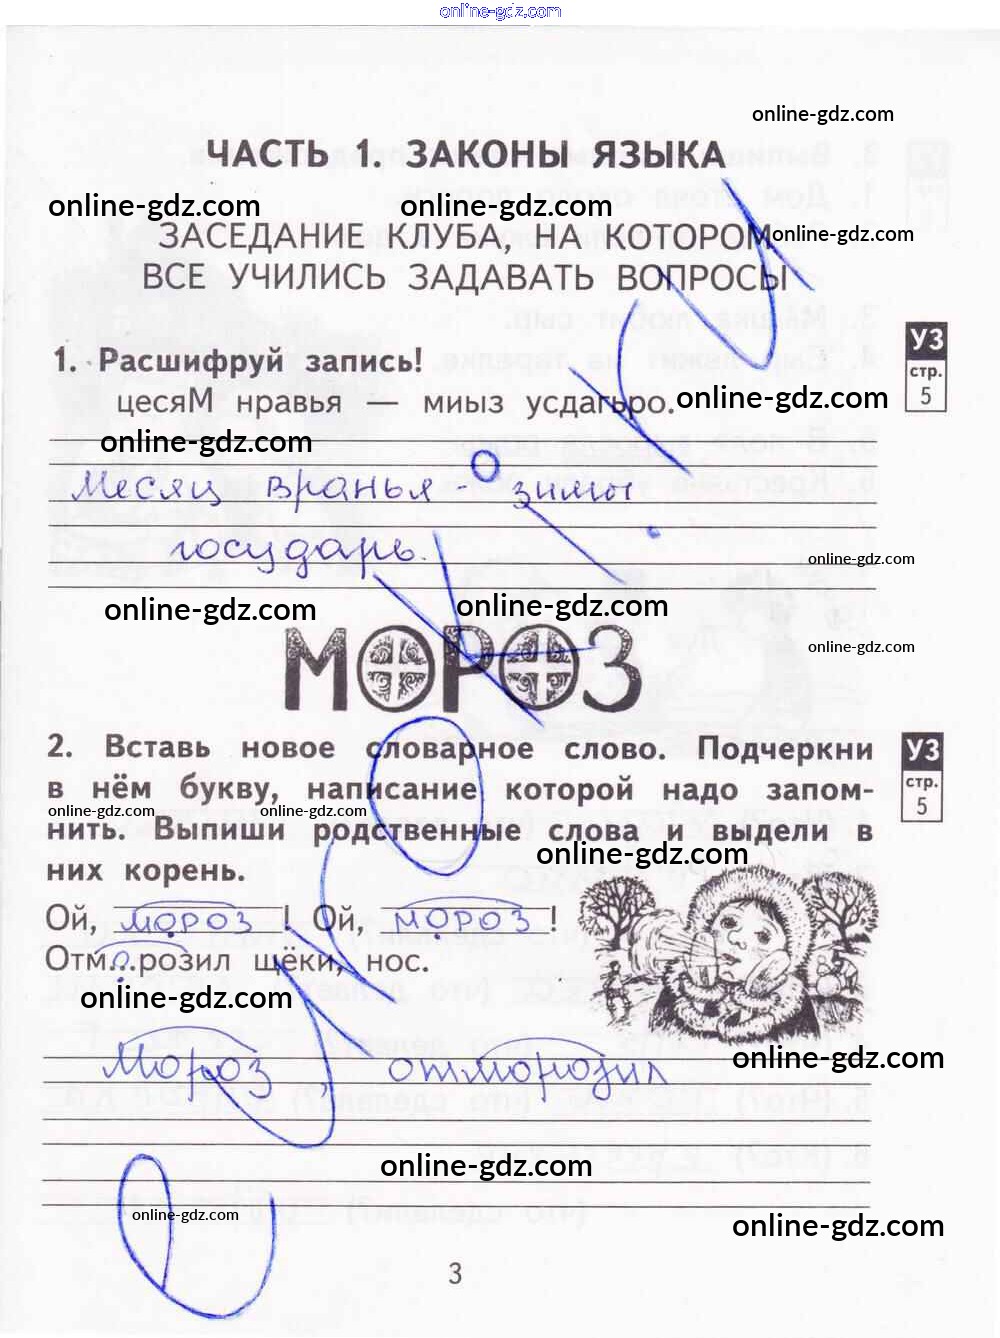 online-gdz.com
online-gdz.com
ЧАСТЬ 1. ЗАКОНЫ ЯЗЫКА
online-gdz.com online-gdz.com
ЗАСЕДАНИЕ КЛУБА, НА КОТОРОМ
online-gdz.com
ВСЕ УЧИЛИСЬ ЗАДАВАТЬ ВОПРОСЫ
1. Расшифруй запись!
УЗ
стр.
5
цесяМ нравья — миыз усдагьро.
online-gdz.com
online-gdz.com
Месяц вранья - зимы
государь.
online-gdz.com
online-gdz.com online-gdz.com
МОРОЗ
online-gdz.com
2. Вставь новое словарное слово. Подчеркни
УЗ
стр.
5
в нём букву, написание которой надо запом-
online-gdz.com online-gdz.com
нить. Выпиши родственные слова и выдели в
online-gdz.com
них корень.
Ой, мороз ! Ой, мороз !
Отм...розил щёки, нос.
о
online-gdz.com
online-gdz.com
Мороз, отморозил
online-gdz.com
online-gdz.com
online-gdz.com
3